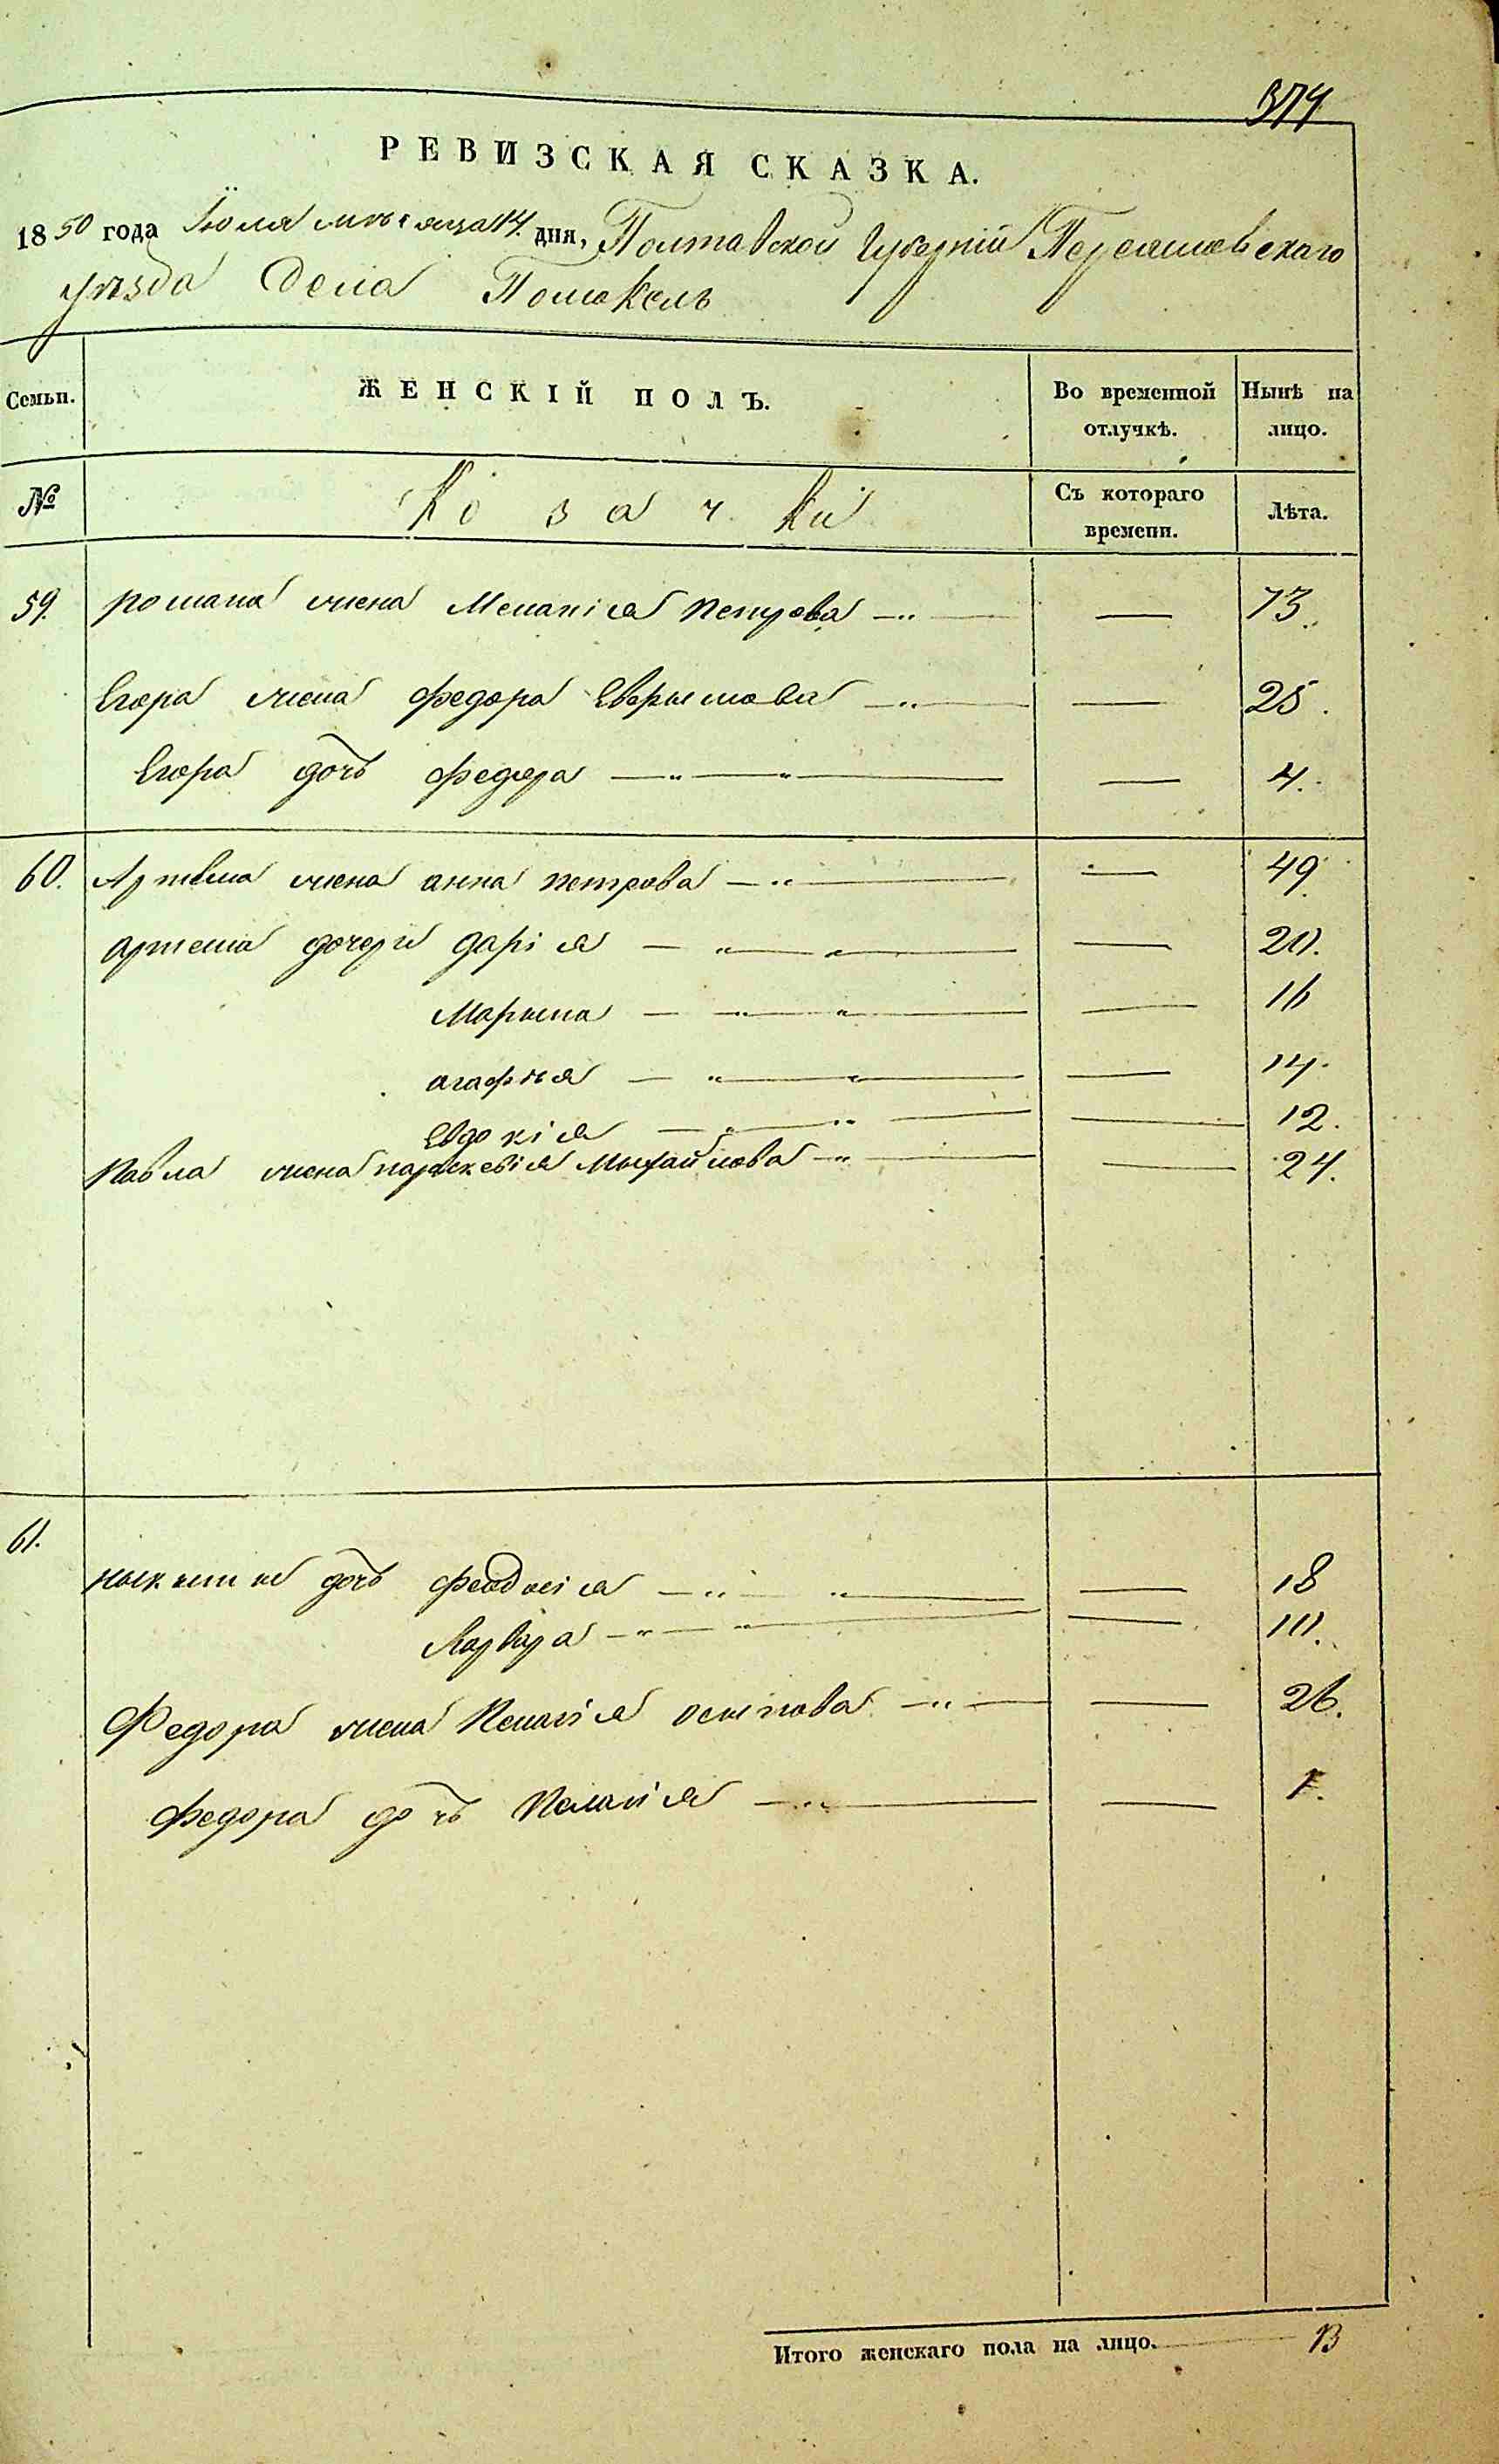 374
РЕВИЗСКАЯ СКАЗКА.
1850 года Іюля мѣсяца 14. дня, Полтавской Губерніи Переяславскаго
уѣзда Села Помокель
Семьи. ЖЕНСКІЙ ПОЛЪ. Во временной отлучкѣ. Нынѣ на лицо.
№ Козачки Съ котораго времени. Лѣта.
59. Романа жена Меланія Петрова — — 73.
Егора жена Федора Ефрымова — — 25.
Егора дочь Федора — — 4.
60. Артема жена анна петрова — — 49.
артема дочери дарія — — 20.
Марына — — 16
агафія — — 14.
Евдокія — — 12.
Павла жена параскевія Мыхайлова — — 24.
61. Ныкиты дочь Феодосія — — 18
Варвара — — 10.
Федора жена Пелагія осыпова — — 26.
Федора дочь Пелагія — — 1.
Итого женскаго пола на лицо. 13